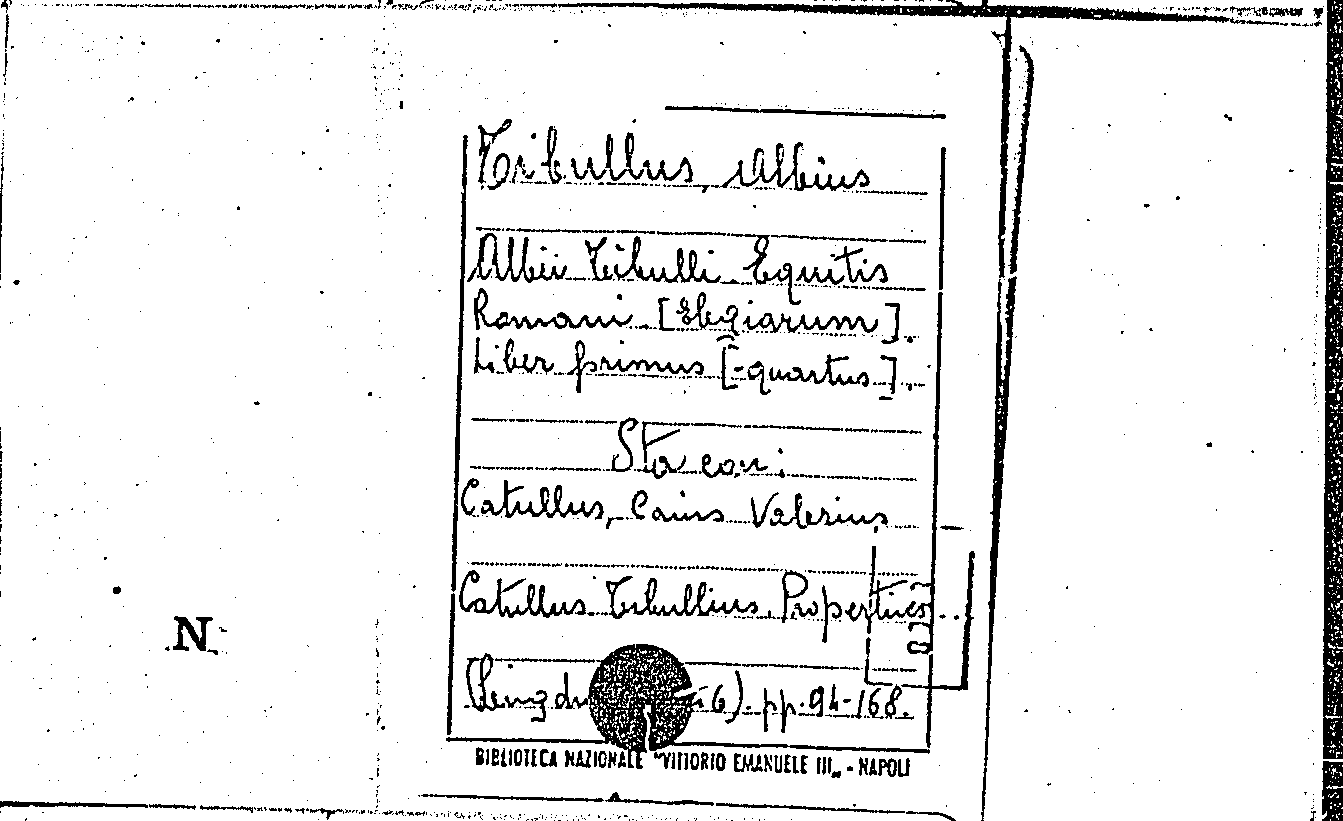 Tibullus, Albius
Albii Tibulli Equitis
Romani [Elegiarum].
Liber primus [-quartus].
Sta con:
Catullus, Caius Valerius
Catullus Tibullius, Propertius...
6). pp. 94-168.
N
BIBLIOTECA NAZIONALE "VITTORIO EMANUELE III" - NAPOLI